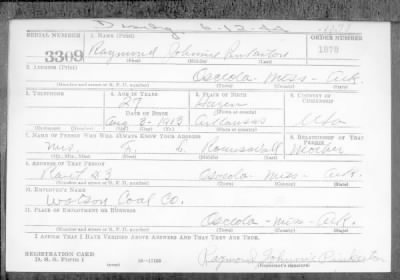 SERIAL NUMBER
1. NAME (Print)
ORDER NUMBER
3309
Raymond Johnnie Pinkerton
1878
(First) (Middle) (Last)
2. ADDRESS (Print)
Osceola - Miss - Ark.
(Number and street or R. F. D. number) (Town) (County) (State)
3. TELEPHONE
4. AGE IN YEARS
5. PLACE OF BIRTH
6. COUNTRY OF CITIZENSHIP
27
DATE OF BIRTH
(Town or county)
Aug 2-1913
Arkansas
USA
(Exchange) (Number)
(Mo.) (Day) (Yr.)
(State or country)
7. NAME OF PERSON WHO WILL ALWAYS KNOW YOUR ADDRESS
8. RELATIONSHIP OF THAT PERSON
Mrs. F. L.
Mother
(Mr., Mrs., Miss) (First) (Middle) (Last)
9. ADDRESS OF THAT PERSON
Osceola - Miss - Ark.
(Number and street or R. F. D. number) (Town) (County) (State)
10. EMPLOYER'S NAME
Watson Coal Co.
11. PLACE OF EMPLOYMENT OR BUSINESS
Osceola - Miss - Ark.
(Number and street or R. F. D. number) (Town) (County) (State)
I AFFIRM THAT I HAVE VERIFIED ABOVE ANSWERS AND THAT THEY ARE TRUE.
REGISTRATION CARD
D. S. S. Form 1
Raymond Johnnie Pinkerton
(Registrant's signature)